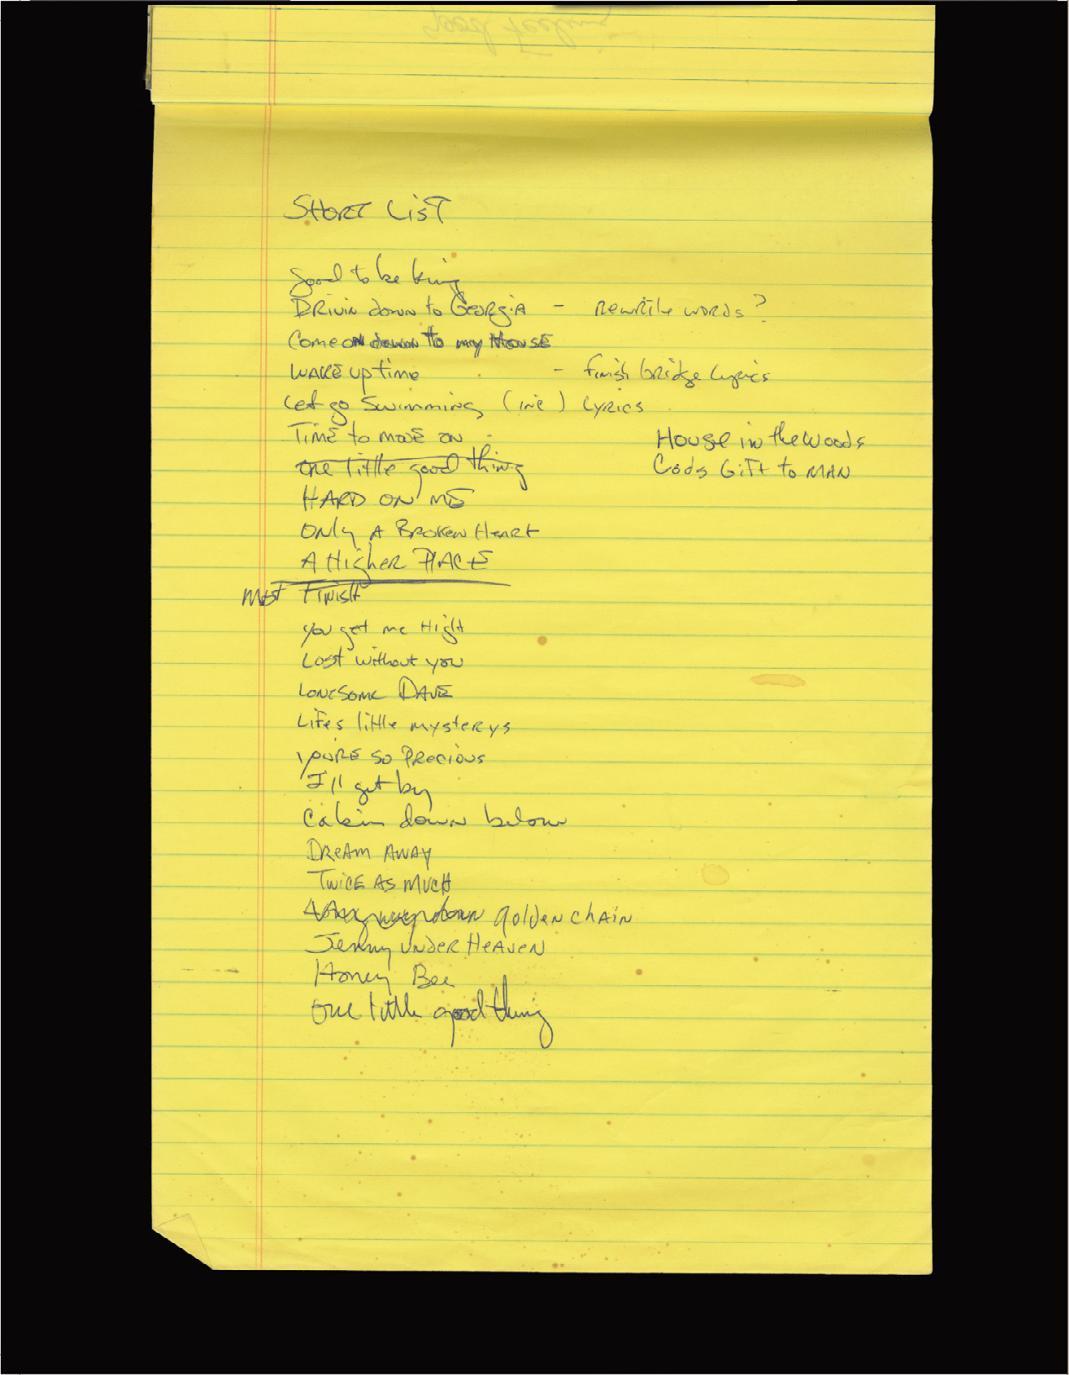 SHORT LIST
good to be king
DRIVIN down to GEORGIA - REWRITE WORDS?
Come ON down to my HOUSE
WAKE up time - finish bridge lyrics
Let go Swimming, ( ) LYRICS
TIME to move on
House in the Woods
one little good thing
Gods GiFt to MAN
HARD ON ME
ONLy A BROKEN HEART
A HigHER PLACE
FINISH
you get me High
Lost without you
LONESOME DAVE
LiFes little mysterys
youRE SO PRECIOUS
I'll get by
Cabin down below
DREAM AWAY
TWICE AS MUCH
down golden chain
Jenny UNDER HEAVEN
Honey Bee
one little good thing